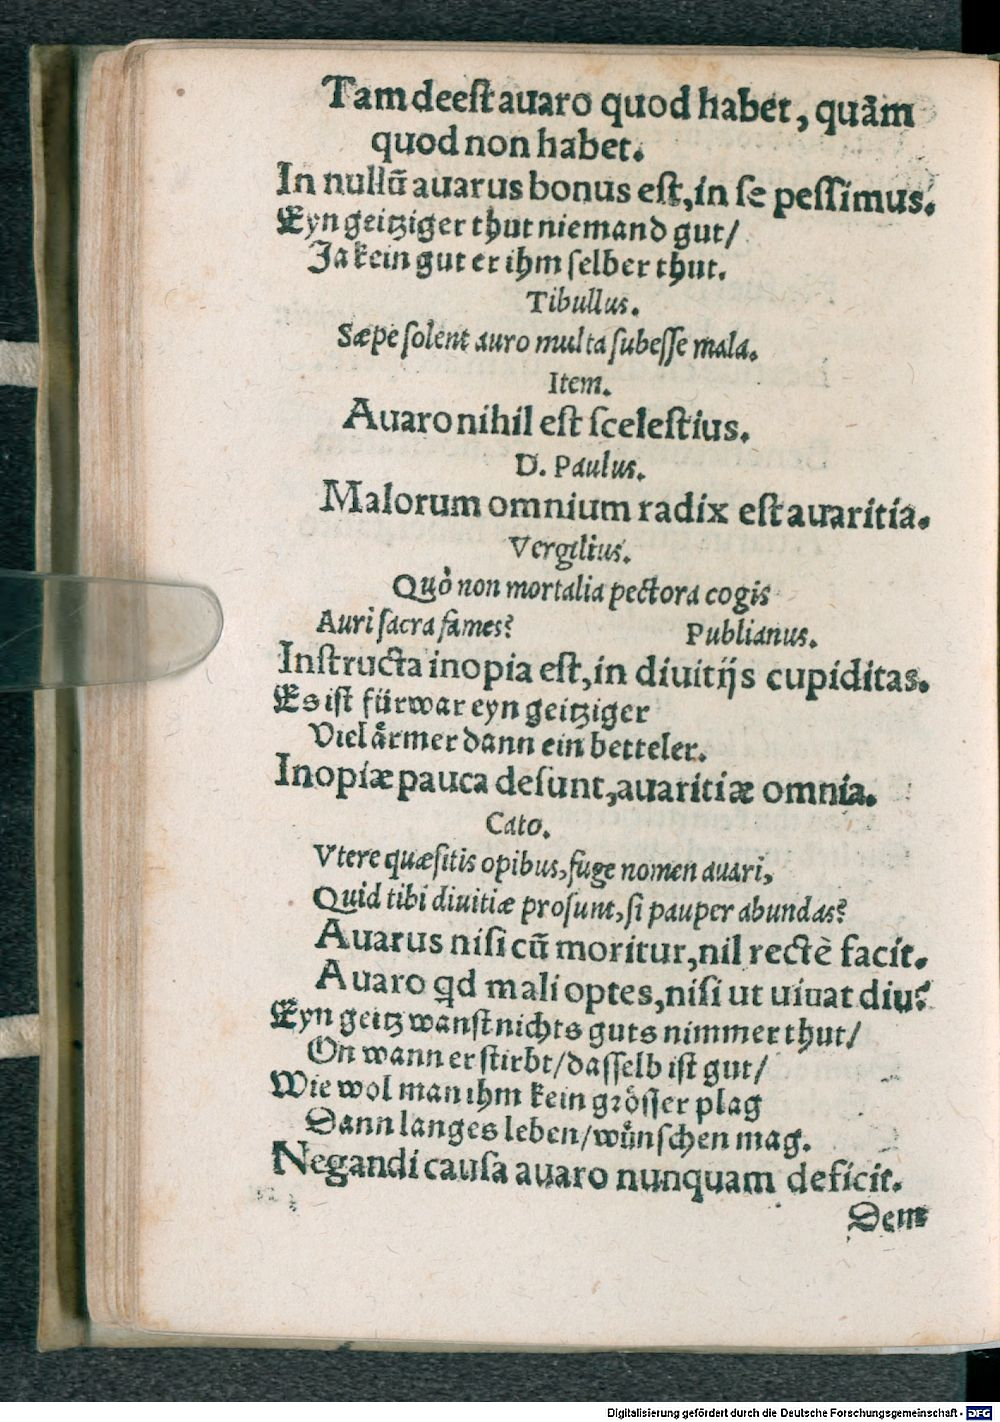 Tam deest auaro quod habet, quãm
quod non habet.
In nullũ auarus bonus est, in se pessimus.
Eyn geitziger thut niemand gut/
Ja kein gut er ihm selber thut.
Tibullus.
Sæpe solent auro multa subesse mala.
Item.
Auaro nihil est scelestius.
D. Paulus.
Malorum omnium radix est auaritia.
Vergilius.
Quò non mortalia pectora cogis
Auri sacra fames? Publianus.
Instructa inopia est, in diuitijs cupiditas.
Es ist fürwar eyn geitziger
Viel aͤrmer dann ein betteler.
Inopiæ pauca desunt, auaritiæ omnia.
Cato.
Vtere quæsitis opibus, fuge nomen auari,
Quid tibi diuitiæ prosunt, si pauper abundas?
Auarus nisi cũ moritur, nil rectè facit.
Auaro qd mali optes, nisi ut uiuat diu?
Eyn geitz wanst nichts guts nimmer thut/
On wann er stirbt/ dasselb ist gut/
Wie wol man ihm kein groͤsser plag
Dann langes leben/ wuͤnschen mag.
Negandi causa auaro nunquam deficit.
Dem
Digitalisierung gefördert durch die Deutsche Forschungsgemeinschaft - DFG